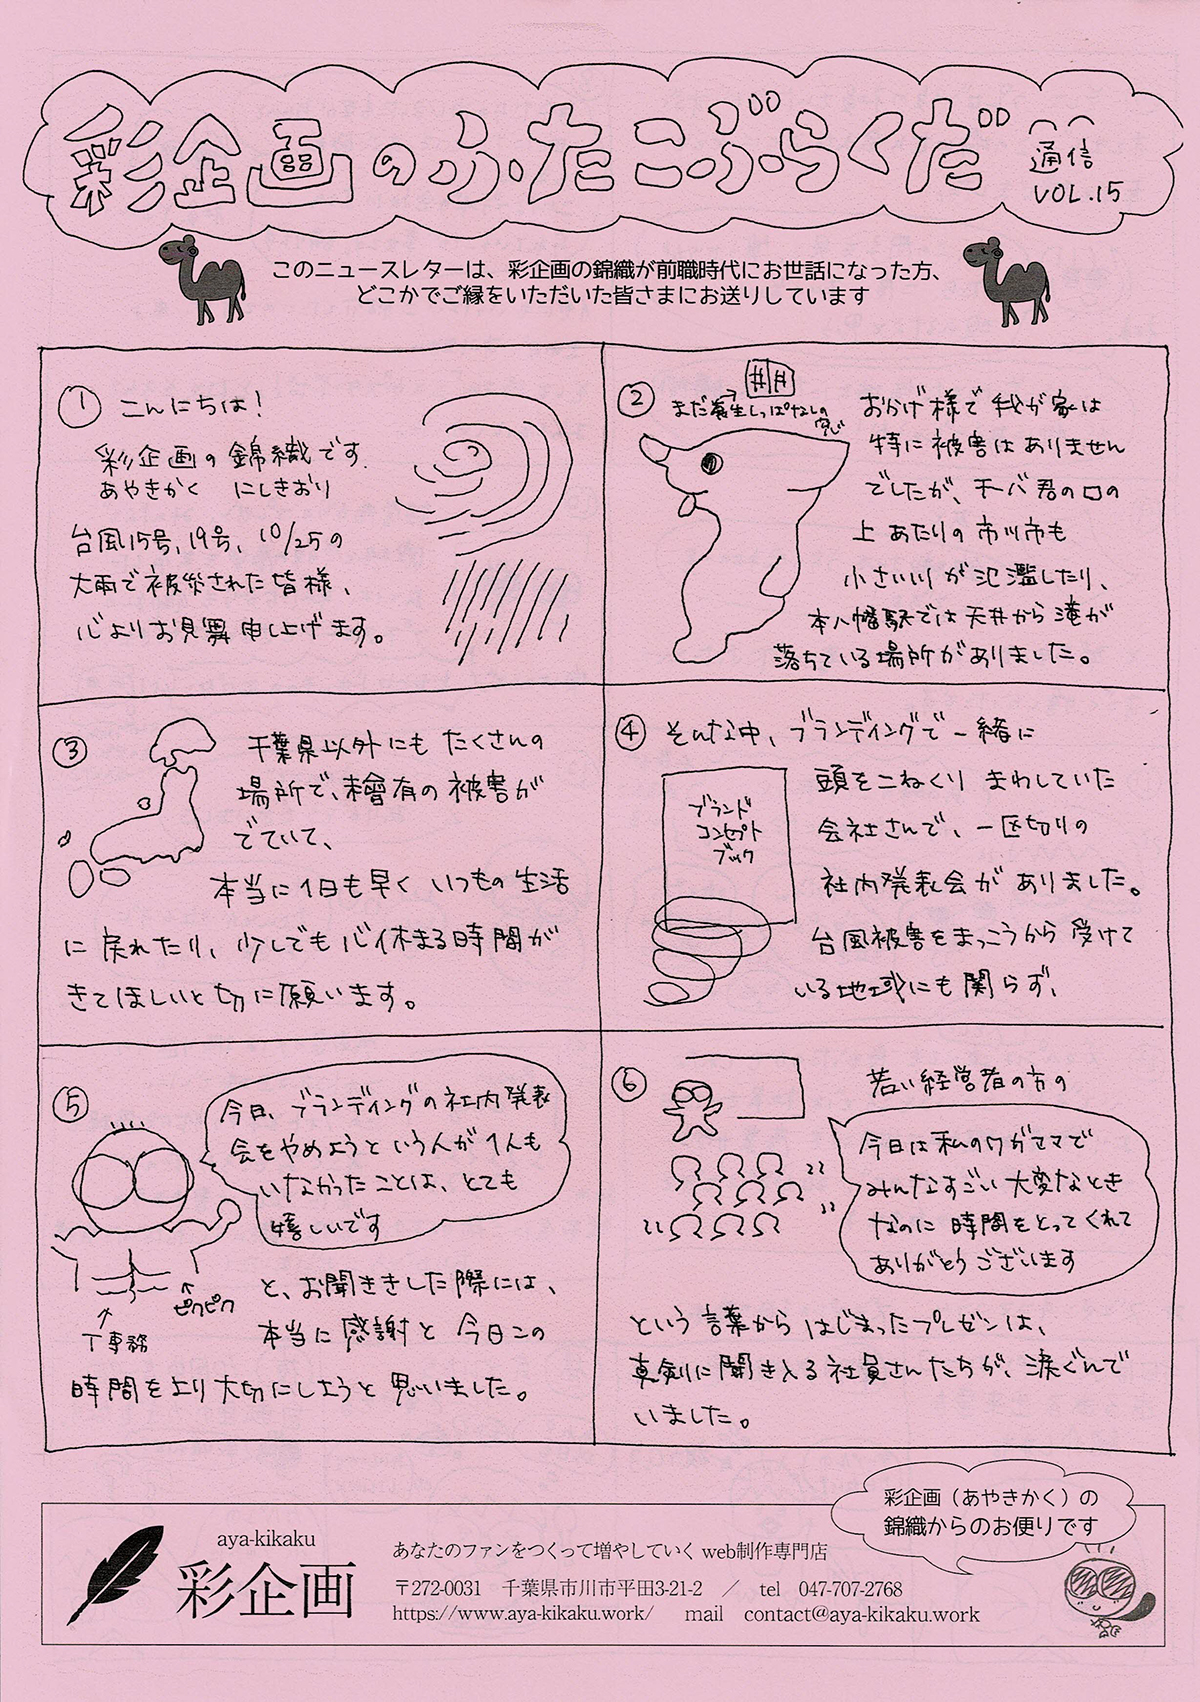 彩企画のふたこぶらくだ
通信
VOL.15
このニュースレターは、彩企画の錦織が前職時代にお世話になった方、
どこかでご縁をいただいた皆さまにお送りしています
① こんにちは!
彩企画の錦織です.
あやきかく にしきおり
台風15号、19号、10/25の
大雨で被災された皆様、
心よりお見舞申し上げます。
②
まだ養生しっぱなしの窓
おかげ様で我が家は
特に被害はありません
でしたが、チーバ君の口の
上あたりの市川市も
小さい川が氾濫したり、
本八幡駅では天井から滝が
落ちている場所がありました。
③ 千葉県以外にもたくさんの
場所で、未曾有の被害が
でていて、
本当に1日も早くいつもの生活
に戻れたり、少しでも心休まる時間が
きてほしいと切に願います。
④ そんな中、ブランディングで一緒に
頭をこねくりまわしていた
会社さんで、一区切りの
社内発表会がありました。
台風被害をまっこうから受けて
いる地域にも関らず、
ブランド
コンセプト
ブック
⑤
今日、ブランディングの社内発表
会をやめようという人が1人も
いなかったことは、とても
嬉しいです
ピクピク
T事務
と、お聞ききした際には、
本当に感謝と今日この
時間をより大切にしようと思いました。
⑥ 若い経営者の方の
今日は私のワガママで
みんなすごい大変なとき
なのに時間をとってくれて
ありがとうございます
という言葉からはじまったプレゼンは、
真剣に聞き入る社員さんたちが、涙ぐんで
いました。
彩企画(あやきかく)の
錦織からのお便りです
aya-kikaku
彩企画
あなたのファンをつくって増やしていくweb制作専門店
〒272-0031 千葉県市川市平田3-21-2 / tel 047-707-2768
https://www.aya-kikaku.work/ mail contact@aya-kikaku.work